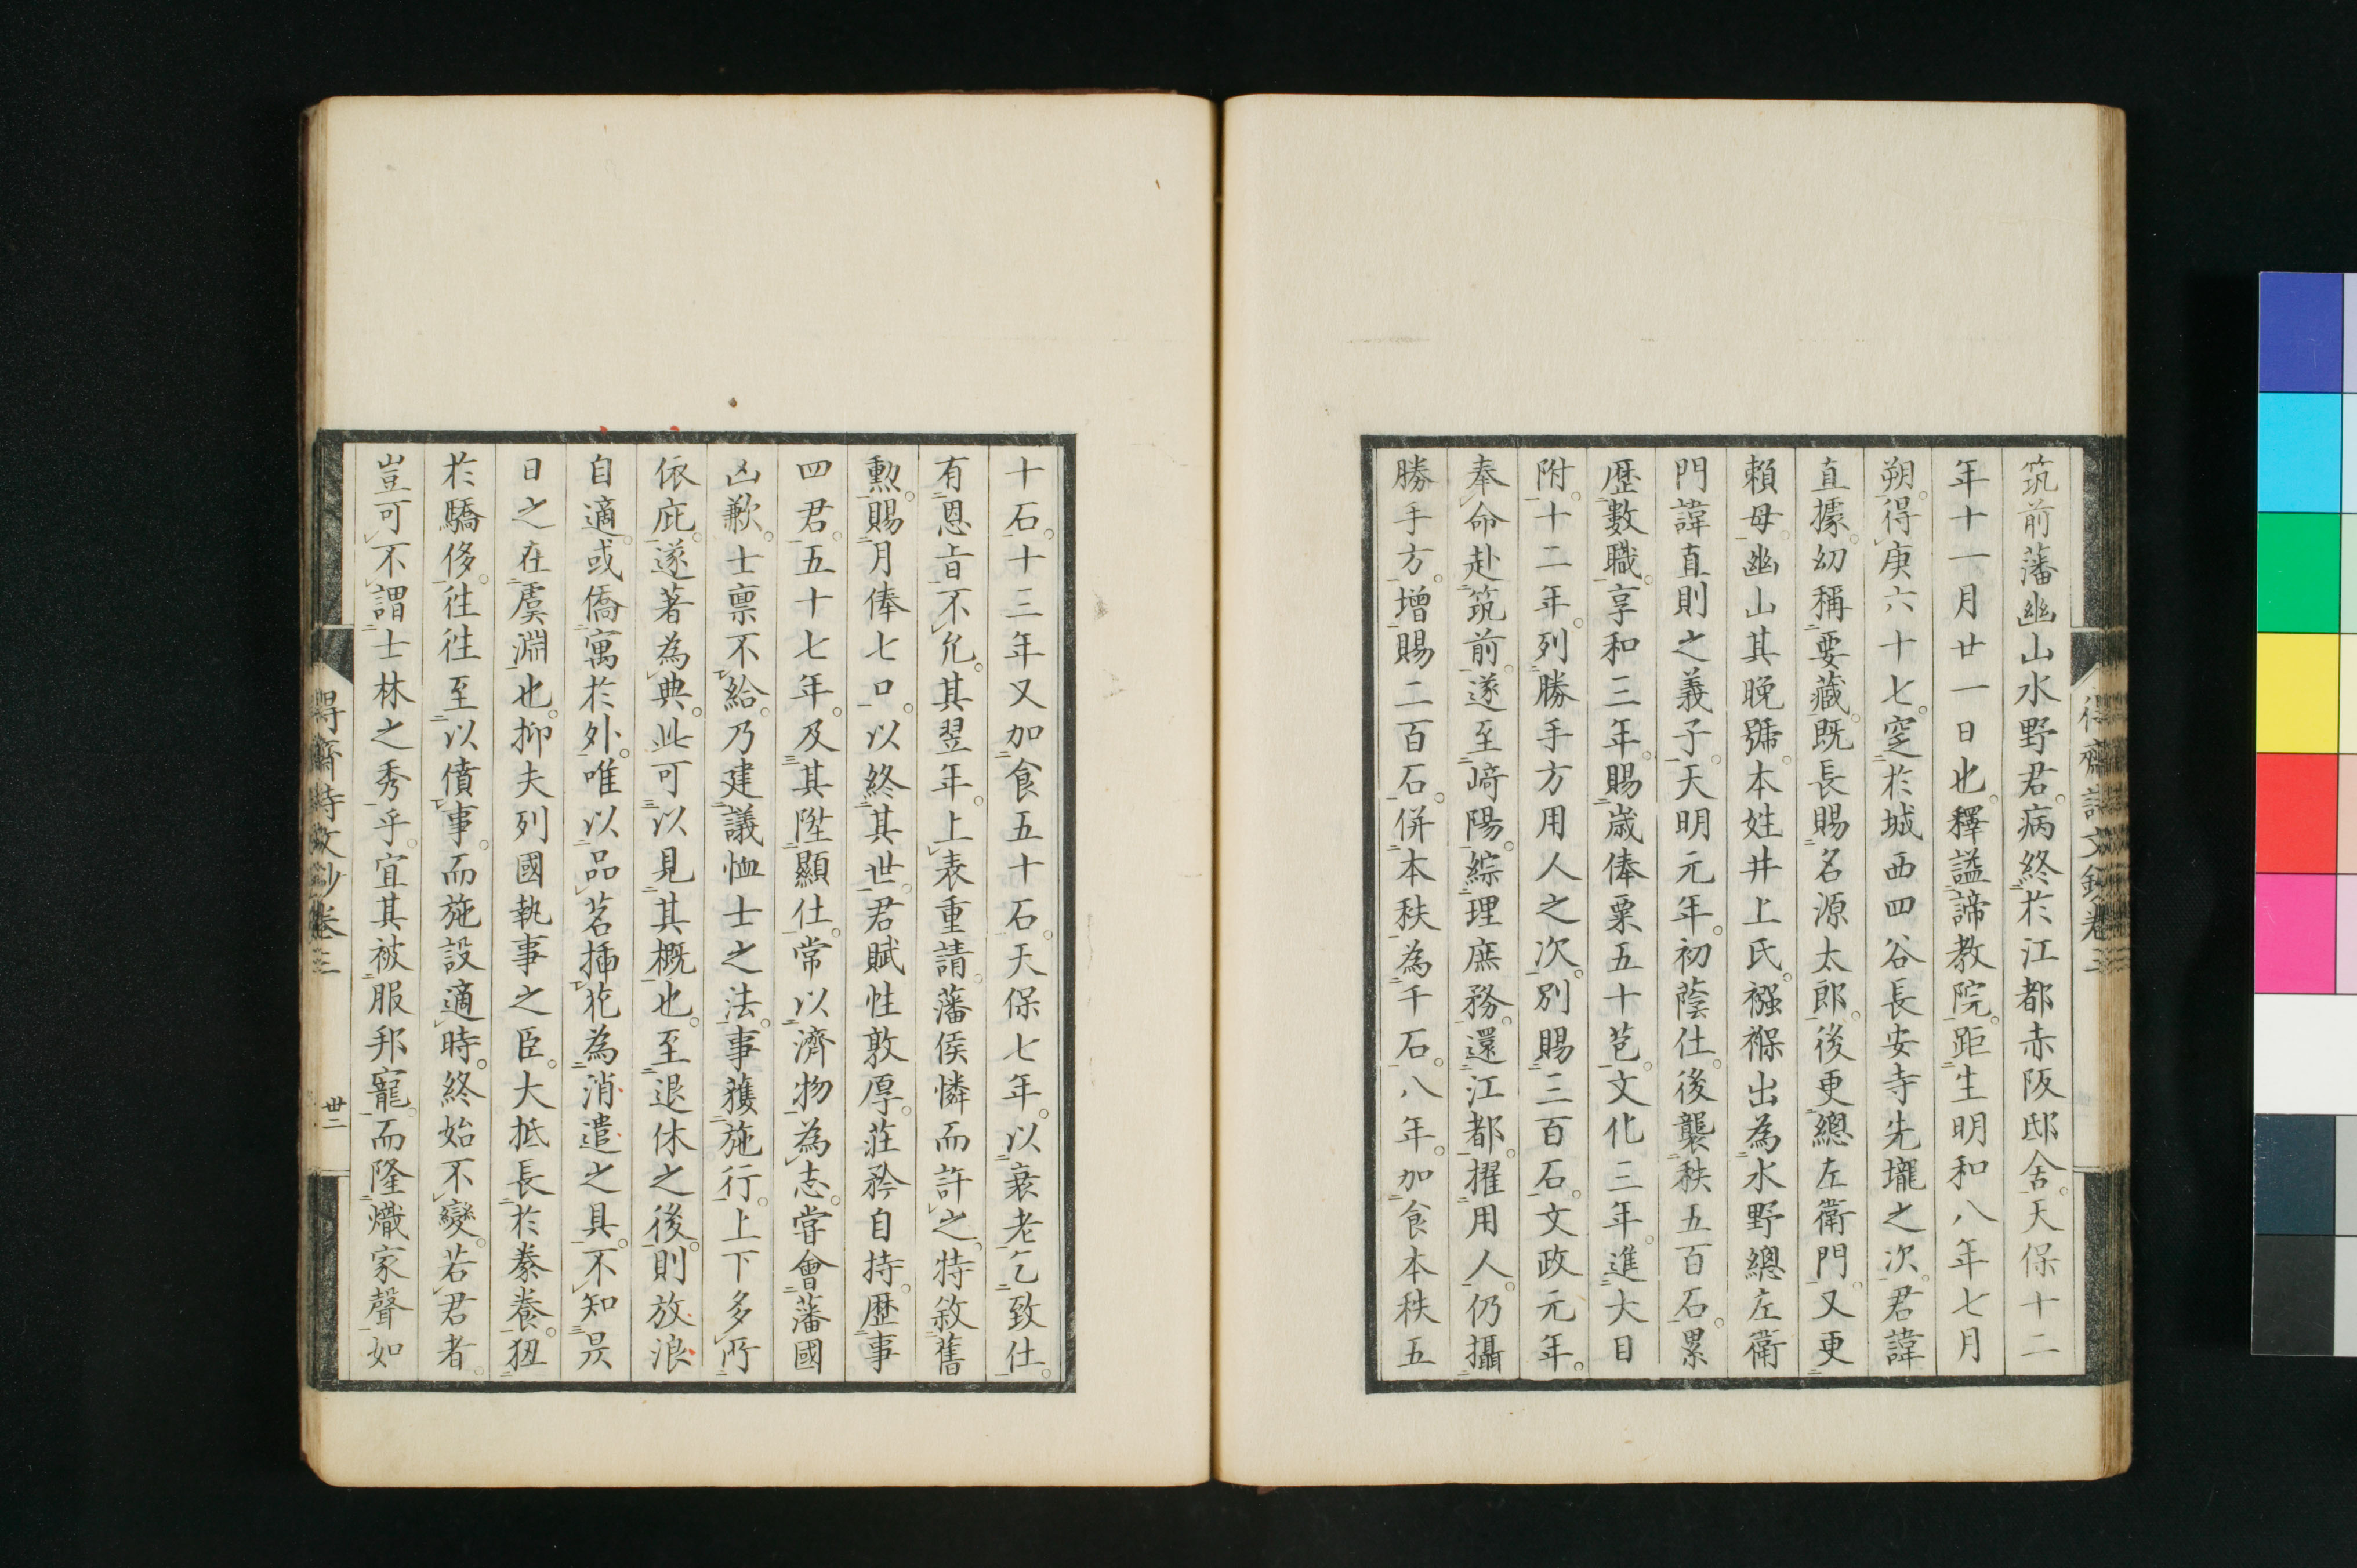 筑前藩幽山水野君。病終於江都赤阪邸舍。天保十二
年十一月廿一日也。釋謚諦教院。距生明和八年七月
朔。得庚六十七。窆於城西四谷長安寺先壠之次。君諱
直據。幼稱要藏。既長賜名源太郎。後更總左衛門。又更
賴母。幽山其晚號。本姓井上氏。襁褓出為水野總左衛
門諱直則之義子。天明元年。初蔭仕。後襲秩五百石。累
歷數職。享和三年。賜歲俸粟五十苞。文化三年。進大目
附。十二年。列勝手方用人之次。別賜三百石。文政元年。
奉命赴筑前。遂至﨑陽。綜理庶務。還江都。擢用人。仍攝
勝手方。增賜二百石。併本秩為千石。八年。加食本秩五
十石。十三年又加食五十石。天保七年。以衰老乞致仕。
有恩旨不允。其翌年。上表重請。藩侯憐而許之。特敘舊
勲。賜月俸七口。以終其世。君賦性敦厚。莊矜自持。歷事
四君。五十七年。及其陞顯仕。常以濟物為志。嘗會藩國
凶歉。士禀不給。乃建議恤士之法。事獲施行。上下多所
依庇。遂著為典。此可以見其概也。至退休之後。則放浪
自適。或僑寓於外。唯以品茗插花為消遣之具。不知昃
日之在虞淵也。抑夫列國執事之臣。大抵長於豢養。狃
於驕侈。往往至以僨事。而施設適時。終始不變。若君者。
豈可不謂士林之秀乎。宜其被服邦寵。而隆熾家聲如
得齋詩文鈔卷三
丗二